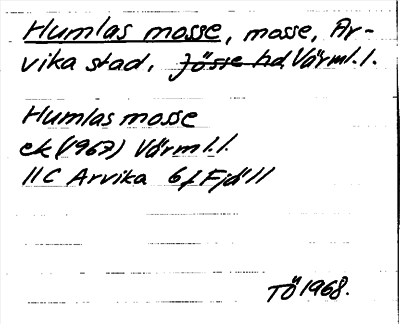 Humlas mosse, mosse, Ar-
vika stad, Jösse hd Värml.l.
Humlas mosse
ek (1967) Värml.l.
11C Arvika 6f Fjäll
TÖ 1968.